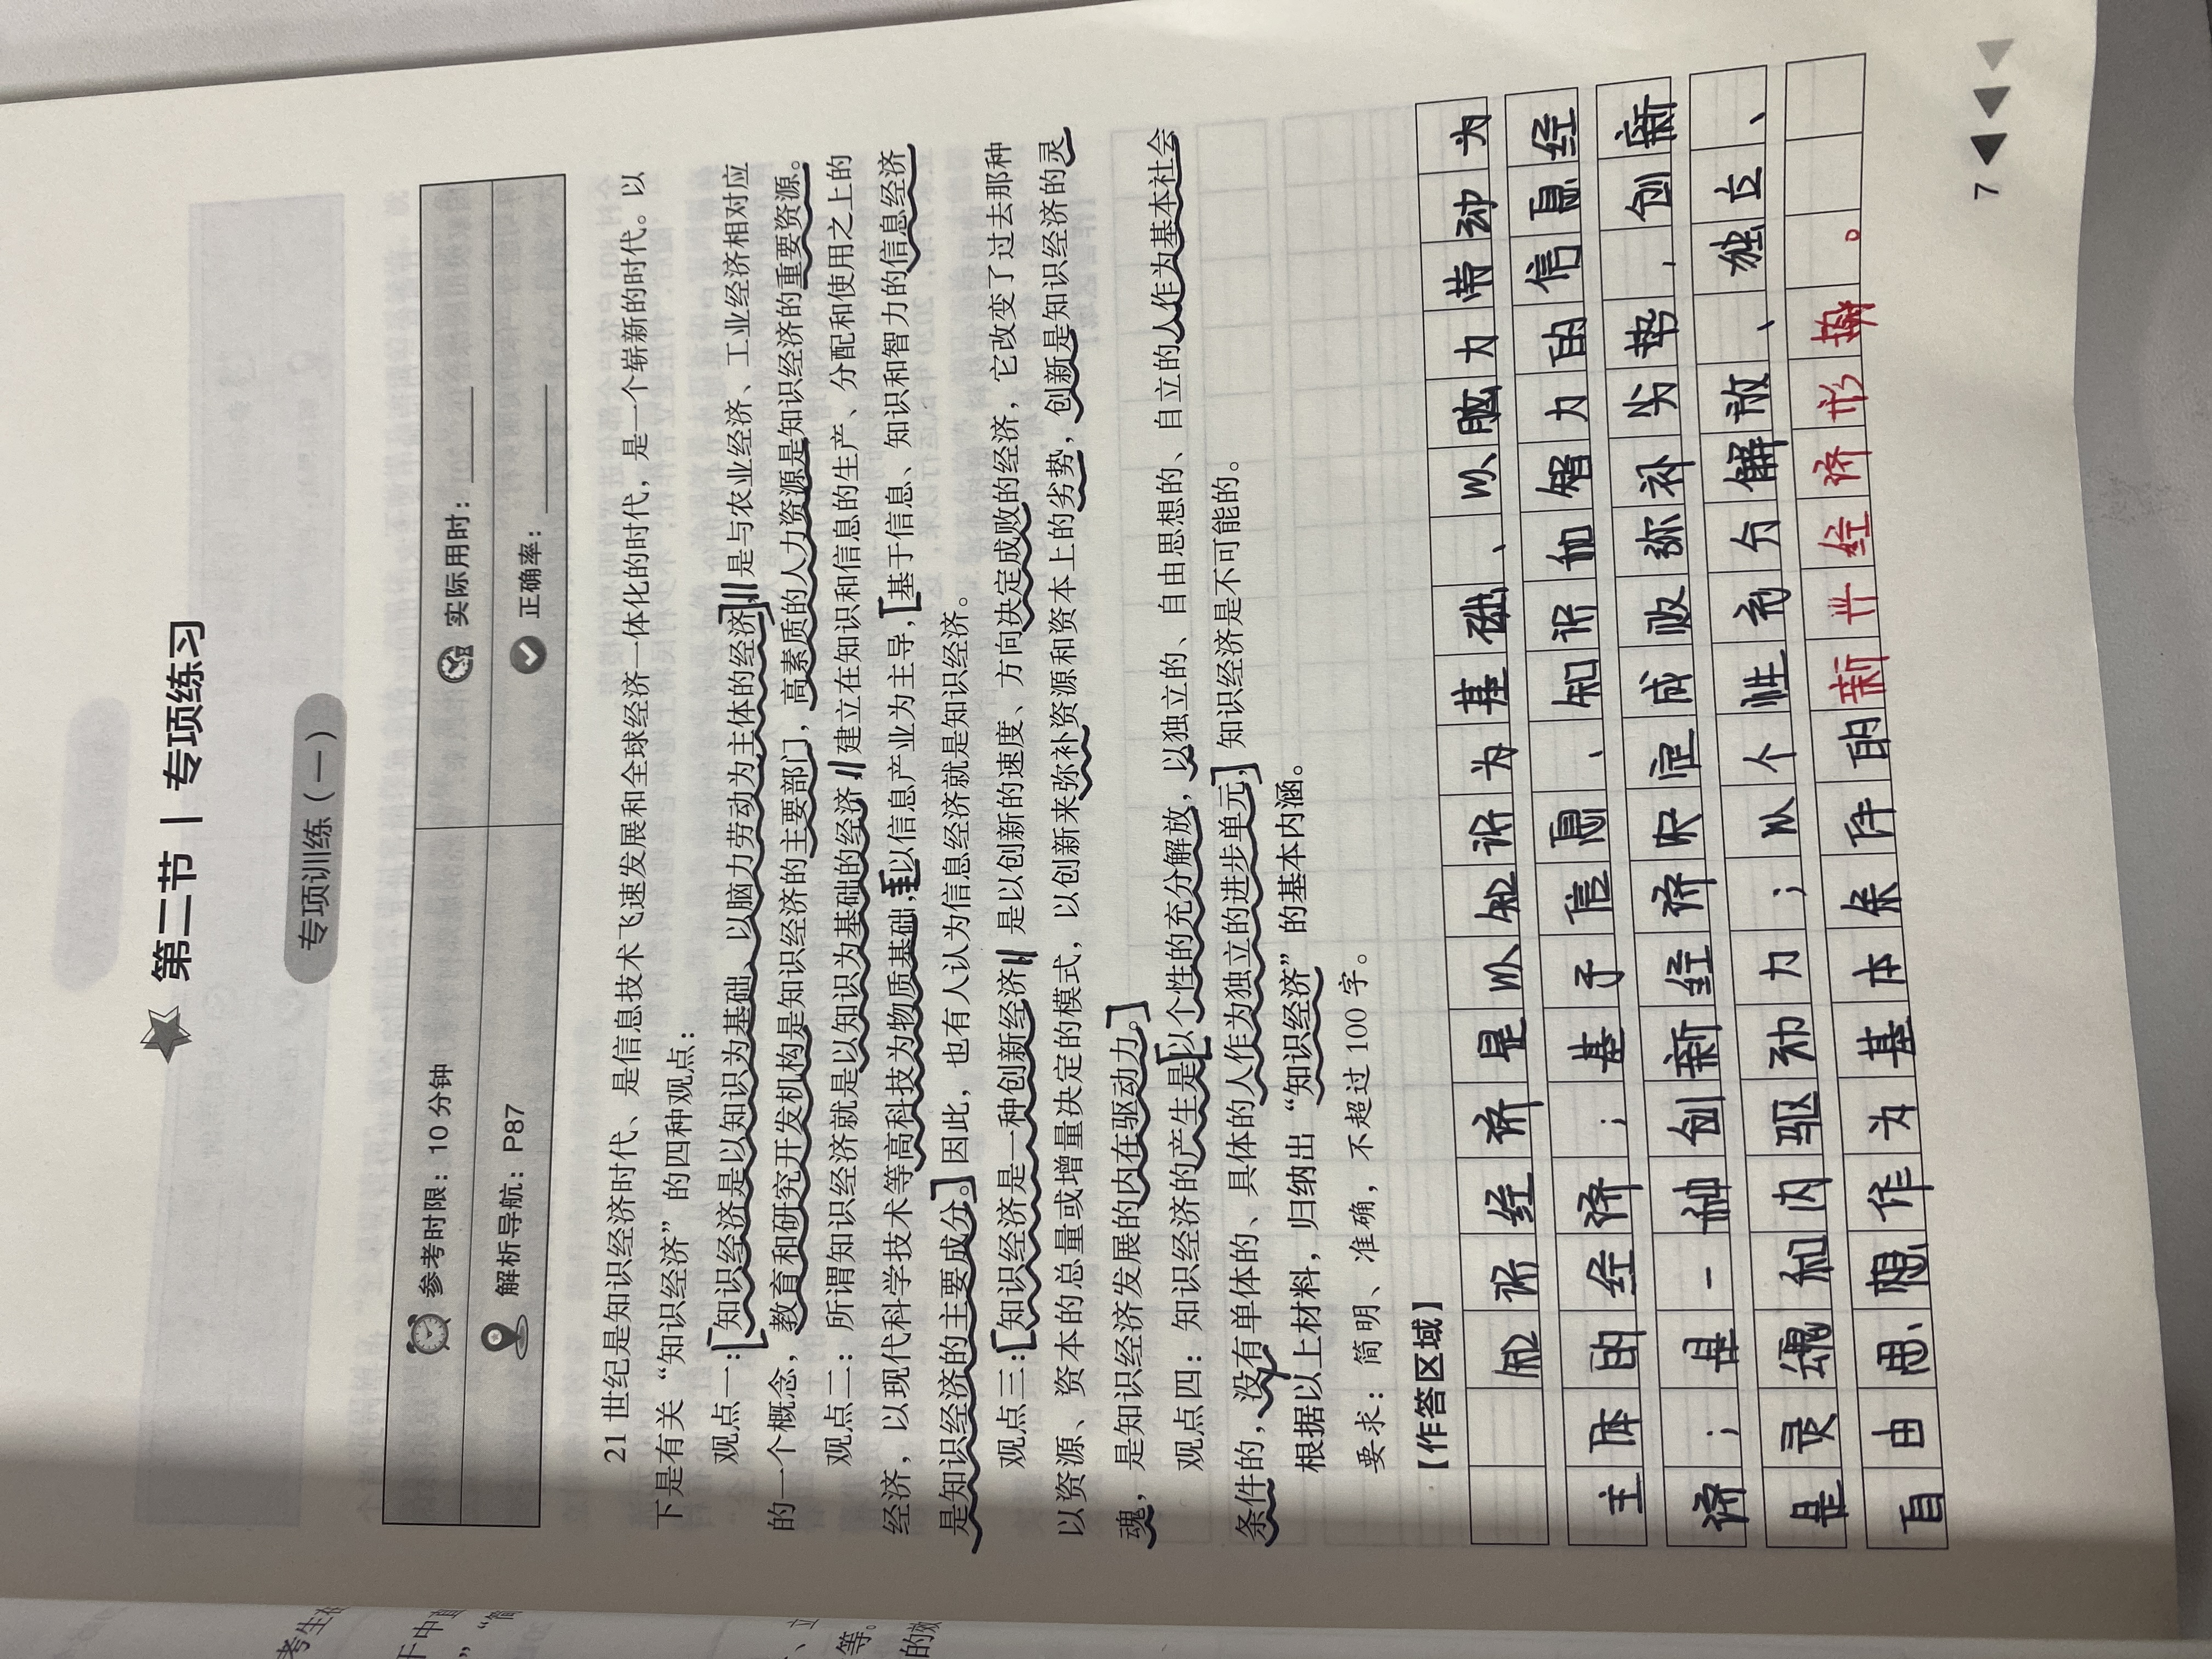 第二节 | 专项练习
专项训练（一）
参考时限：10 分钟 实际用时：
解析导航：P87 正确率：
21 世纪是知识经济时代、是信息技术飞速发展和全球经济一体化的时代，是一个崭新的时代。以
下是有关“知识经济”的四种观点：
观点一：知识经济是以知识为基础、以脑力劳动为主体的经济，是与农业经济、工业经济相对应
的一个概念，教育和研究开发机构是知识经济的主要部门，高素质的人力资源是知识经济的重要资源。
观点二：所谓知识经济就是以知识为基础的经济，建立在知识和信息的生产、分配和使用之上的
经济，以现代科学技术等高科技为物质基础，以信息产业为主导，基于信息、知识和智力的信息经济
是知识经济的主要成分。因此，也有人认为信息经济就是知识经济。
观点三：知识经济是一种创新经济，是以创新的速度、方向决定成败的经济，它改变了过去那种
以资源、资本的总量或增量决定的模式，以创新来弥补资源和资本上的劣势，创新是知识经济的灵
魂，是知识经济发展的内在驱动力。
观点四：知识经济的产生是以个性的充分解放，以独立的、自由思想的、自立的人作为基本社会
条件的，没有单体的、具体的人作为独立的进步单元，知识经济是不可能的。
根据以上材料，归纳出“知识经济”的基本内涵。
要求：简明、准确，不超过 100 字。
【作答区域】
知识经济是以知识为基础、以脑力劳动为
主体的经济；基于信息、知识和智力的信息经
济；是一种创新经济决定成败弥补劣势，创新
是灵魂和内驱动力；以个性充分解放、独立、
自由思想作为基本条件的新兴经济形势。
7